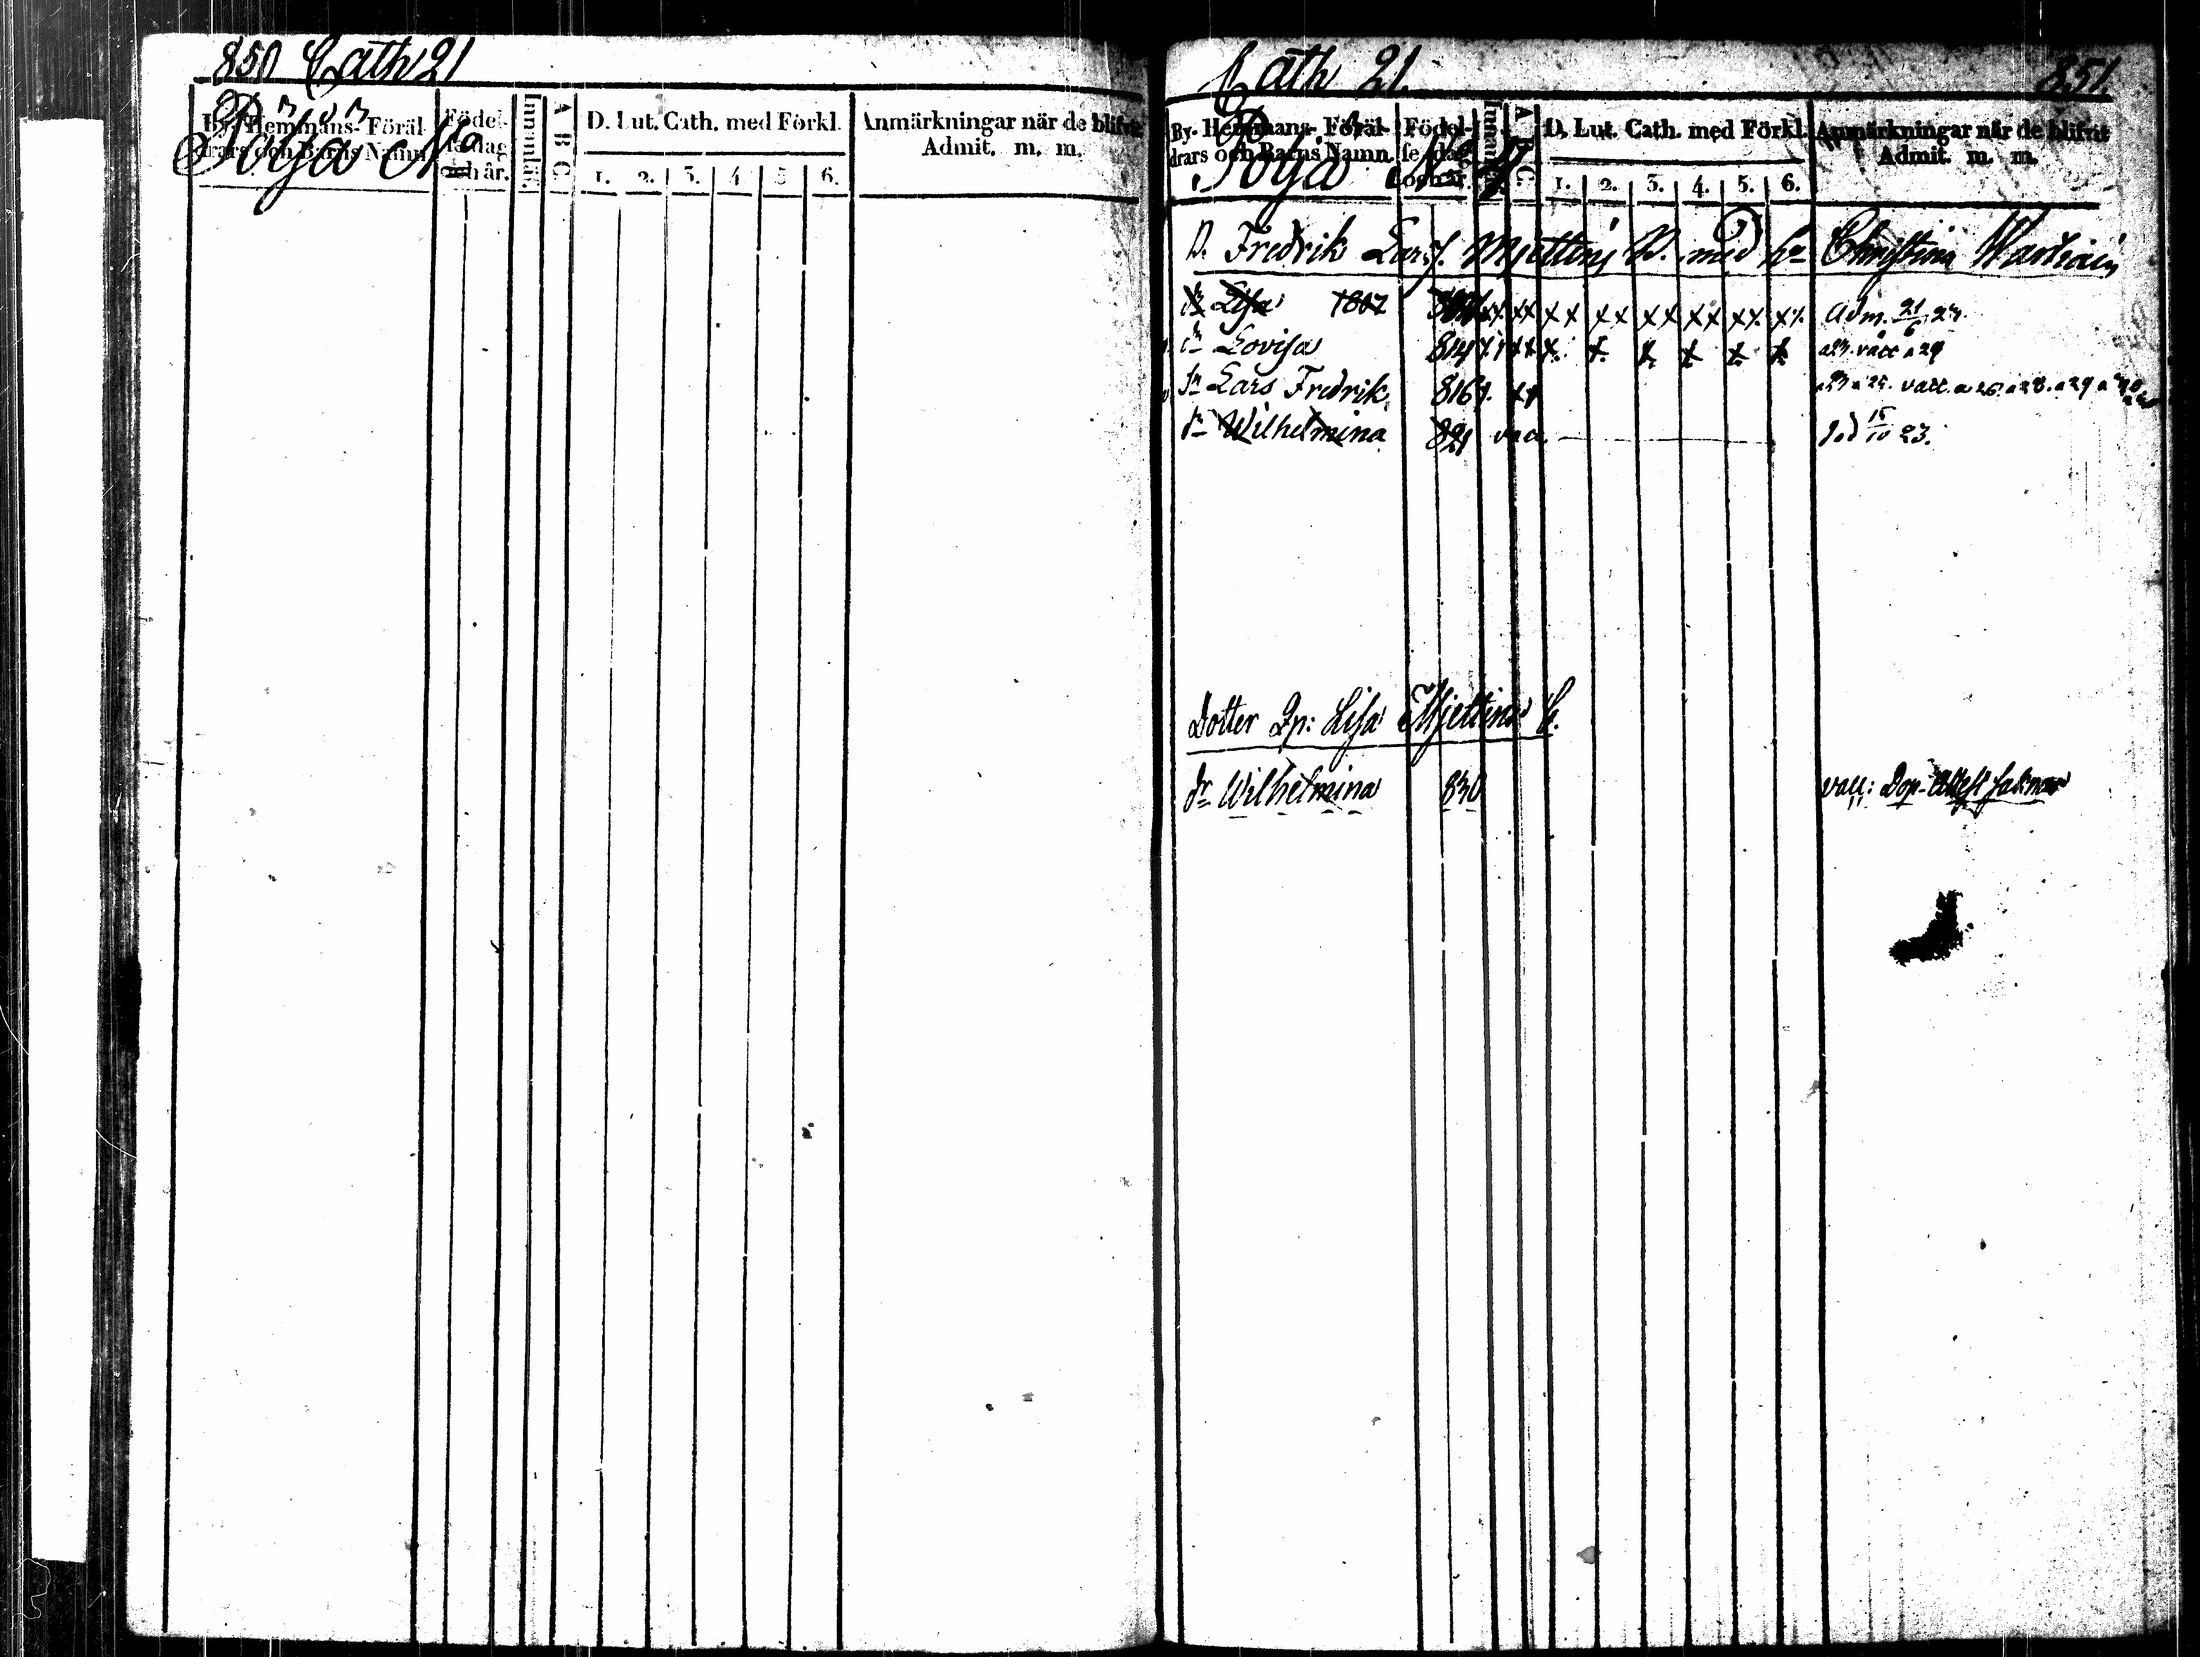 850 Cath 21
By- Hemmans- Föräl-
drars och Barns Namn.
Pöljä No
Födel-
se dag
och år.
Innanläs.
A B C
D. Lut. Cath. med Förkl.
1. 2. 3. 4. 5. 6.
Anmärkningar när de blifvit
Admit. m. m.
Cath 21.
851.
By- Hemmans- Föräl-
drars och Barns Namn.
Pöljä No
Födel-
se dag
och år.
Innanläs.
A B C
D. Lut. Cath. med Förkl.
1. 2. 3. 4. 5. 6.
Anmärkningar när de blifvit
Admit. m. m.
D. Fredrik Larsf. Mjettinś D. med Christina
dr Lisa 1807 xx xx xx xx xx xx xx Adm. 21/6 27.
dr Lovisa 814 xx x. x. x. x. x. x. vacc a 29
sn Lars Fredrik 816 x. xx vacc. a 26. a 28. a 29 a 30
dr Wilhelmina 821 vacc. död 15/10 23.
Dotter Lisa Mjettinen
dr Wilhelmina 830 vacc: Dop-Attest saknar